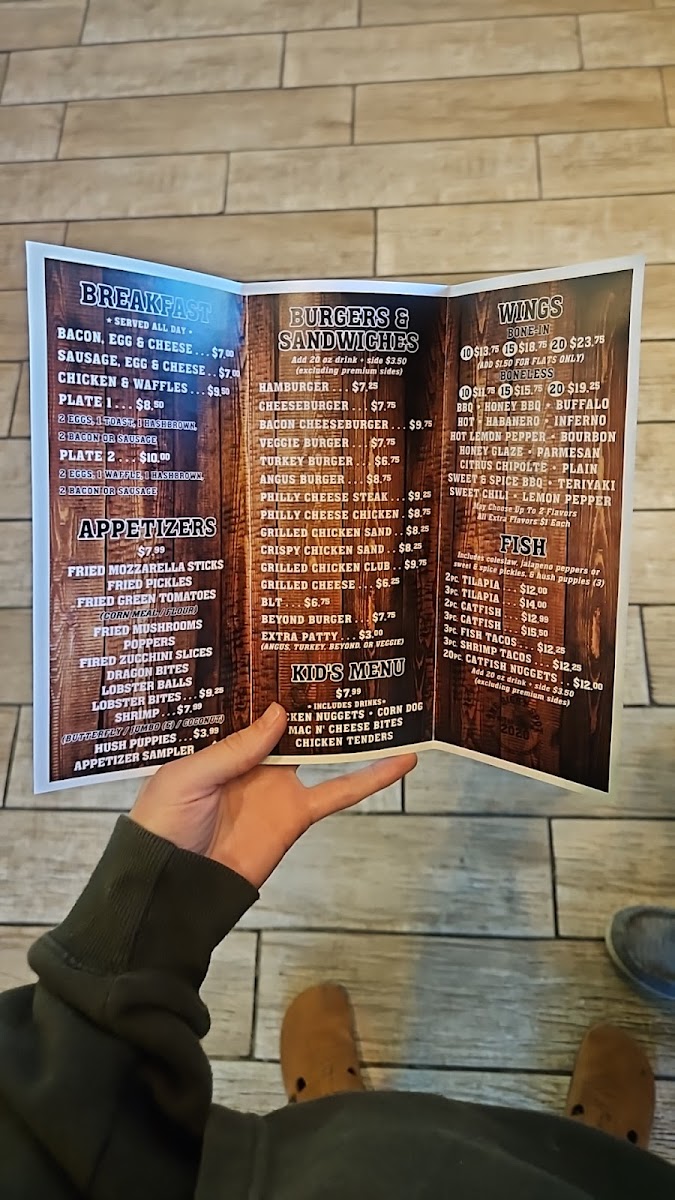 BREAKFAST
* SERVED ALL DAY *
BACON, EGG & CHEESE . . . $7.00
SAUSAGE, EGG & CHEESE . . $7.00
CHICKEN & WAFFLES . . . $9.50
PLATE 1 . . . $8.50
2 EGGS, 1 TOAST, 1 HASHBROWN,
2 BACON OR SAUSAGE
PLATE 2 . . . $10.00
2 EGGS, 1 WAFFLE, 1 HASHBROWN,
2 BACON OR SAUSAGE
APPETIZERS
$7.99
FRIED MOZZARELLA STICKS
FRIED PICKLES
FRIED GREEN TOMATOES
(CORN MEAL / FLOUR)
FRIED MUSHROOMS
POPPERS
FIRED ZUCCHINI SLICES
DRAGON BITES
LOBSTER BALLS
LOBSTER BITES . . . $9.25
SHRIMP . . . $7.99
(BUTTERFLY / JUMBO (5) / COCONUT)
HUSH PUPPIES . . . $3.99
APPETIZER SAMPLER
BURGERS &
SANDWICHES
Add 20 oz drink + side $3.50
(excluding premium sides)
HAMBURGER . . . $7.25
CHEESEBURGER . . . $7.75
BACON CHEESEBURGER . . . $9.75
VEGGIE BURGER . . . $7.75
TURKEY BURGER . . . $6.75
ANGUS BURGER . . . $8.75
PHILLY CHEESE STEAK . . . $9.25
PHILLY CHEESE CHICKEN . $8.75
GRILLED CHICKEN SAND . . $8.25
CRISPY CHICKEN SAND . . $8.25
GRILLED CHICKEN CLUB . . $9.75
GRILLED CHEESE . . . $6.25
BLT . . . $6.75
BEYOND BURGER . . . $7.75
EXTRA PATTY . . . $3.00
(ANGUS, TURKEY, BEYOND, OR VEGGIE)
KID'S MENU
$7.99
* INCLUDES DRINKS*
CKEN NUGGETS • CORN DOG
MAC N' CHEESE BITES
CHICKEN TENDERS
WINGS
BONE-IN
10 $13.75 15 $18.75 20 $23.75
(ADD $1.50 FOR FLATS ONLY)
BONELESS
10 $11.75 15 $15.75 20 $19.25
BBQ • HONEY BBQ • BUFFALO
HOT • HABANERO • INFERNO
HOT LEMON PEPPER • BOURBON
HONEY GLAZE • PARMESAN
CITRUS CHIPOLTE • PLAIN
SWEET & SPICE BBQ • TERIYAKI
SWEET CHILI • LEMON PEPPER
May Choose Up To 2 Flavors
All Extra Flavors $1 Each
FISH
Includes coleslaw, jalapeno peppers or
sweet & spice pickles, & hush puppies (3)
2PC. TILAPIA . . . $12.00
3PC. TILAPIA . . . $14.00
2PC. CATFISH . . . $12.99
3PC. CATFISH . . . $15.50
3PC. FISH TACOS . . . $12.25
3PC. SHRIMP TACOS . . . $12.25
20PC. CATFISH NUGGETS . . $12.00
Add 20 oz drink + side $3.50
(excluding premium sides)
2020